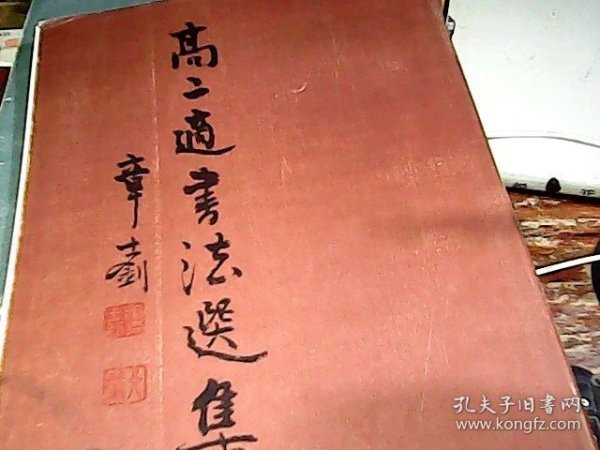 高二適書法選集
章士釗
孔夫子旧书网
www.kongfz.com